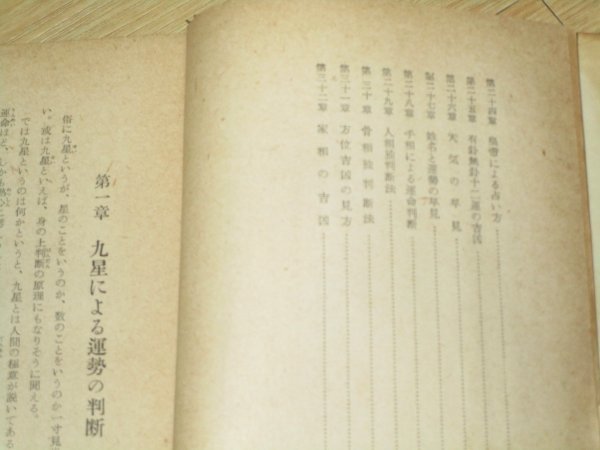 第二十四章 皇帝による占い方
第二十五章 有卦無卦十二運の吉凶
第二十六章 天気の早見
第二十七章 姓名と運勢の早見
第二十八章 手相による運命判断
第二十九章 人相独判断法
第三十章 骨相独判断法
第三十一章 方位吉凶の見方
第三十二章 家相の吉凶
第一章 九星による運勢の判断
俗に九星というが、星のことをいうのか、数のことをいうのか一寸見
い。或は九星といえば、身の上判断の原理にもなりそうに聞える。
では九星というのは何かというと、九星とは人間の
が説いてある